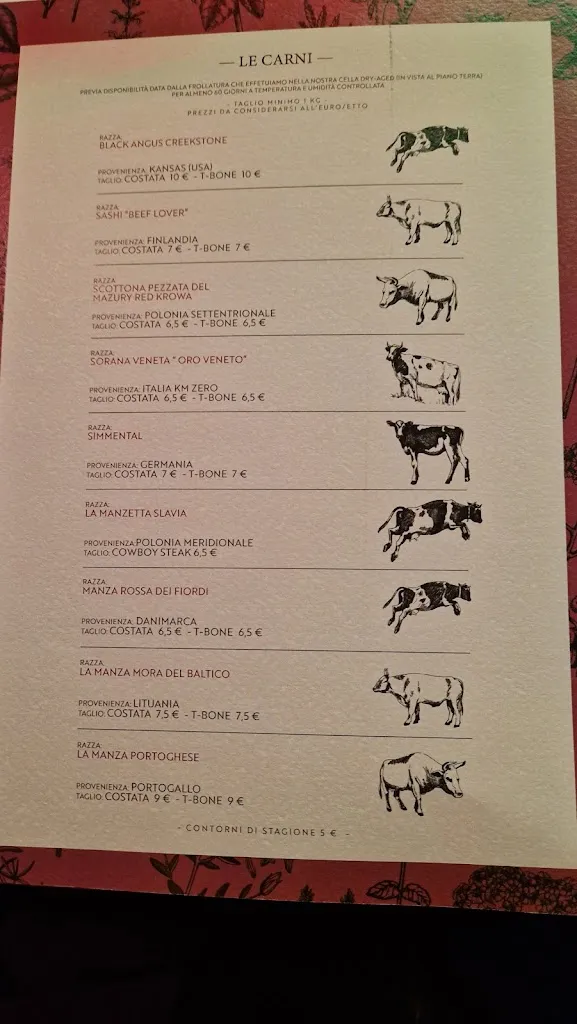 — LE CARNI —
PREVIA DISPONIBILITÀ DATA DALLA FROLLATURA CHE EFFETUIAMO NELLA NOSTRA CELLA DRY-AGED (IN VISTA AL PIANO TERRA)
PER ALMENO 60 GIORNI A TEMPERATURA E UMIDITÀ CONTROLLATA
- TAGLIO MINIMO 1 KG -
PREZZI DA CONSIDERARSI ALL'EURO/ETTO
RAZZA:
BLACK ANGUS CREEKSTONE
PROVENIENZA: KANSAS (USA)
TAGLIO: COSTATA 10 € - T-BONE 10 €
RAZZA:
SASHI "BEEF LOVER"
PROVENIENZA: FINLANDIA
TAGLIO: COSTATA 7 € - T-BONE 7 €
RAZZA:
SCOTTONA PEZZATA DEL
MAZURY RED KROWA
PROVENIENZA: POLONIA SETTENTRIONALE
TAGLIO: COSTATA 6,5 € - T-BONE 6,5 €
RAZZA:
SORANA VENETA " ORO VENETO"
PROVENIENZA: ITALIA KM ZERO
TAGLIO: COSTATA 6,5 € - T-BONE 6,5 €
RAZZA:
SIMMENTAL
PROVENIENZA: GERMANIA
TAGLIO: COSTATA 7 € - T-BONE 7 €
RAZZA:
LA MANZETTA SLAVIA
PROVENIENZA: POLONIA MERIDIONALE
TAGLIO: COWBOY STEAK 6,5 €
RAZZA:
MANZA ROSSA DEI FIORDI
PROVENIENZA: DANIMARCA
TAGLIO: COSTATA 6,5 € - T-BONE 6,5 €
RAZZA:
LA MANZA MORA DEL BALTICO
PROVENIENZA: LITUANIA
TAGLIO: COSTATA 7,5 € - T-BONE 7,5 €
RAZZA:
LA MANZA PORTOGHESE
PROVENIENZA: PORTOGALLO
TAGLIO: COSTATA 9 € - T-BONE 9 €
- CONTORNI DI STAGIONE 5 € -